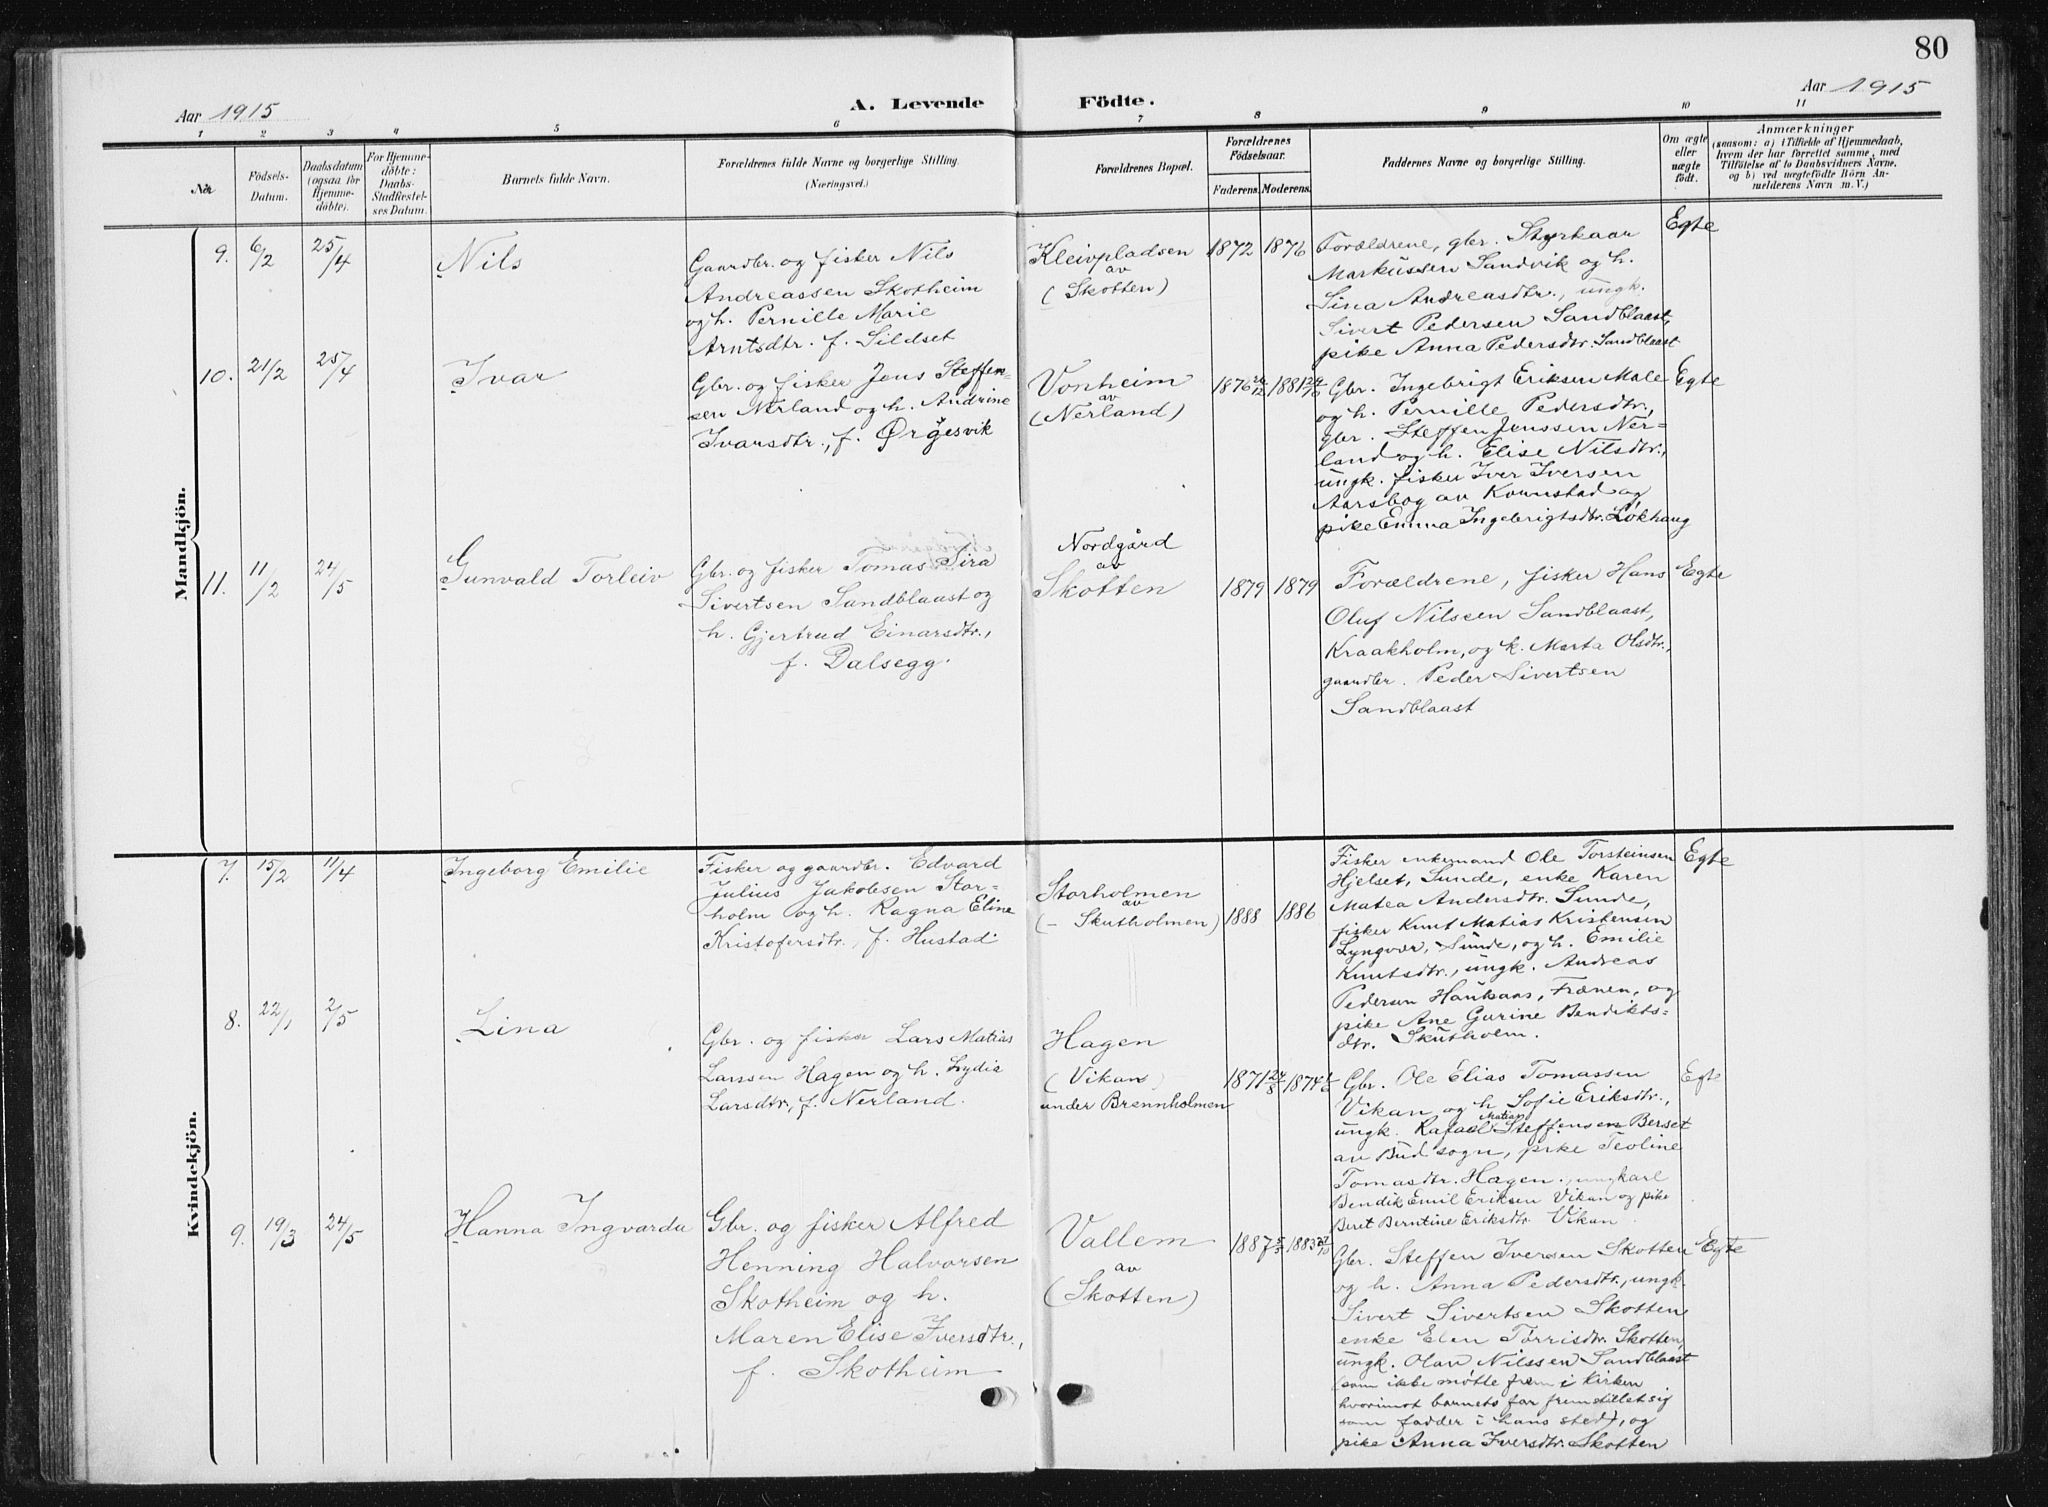 80
Aar 1915
A. Levende Födte.
Aar 1915
1 2 3 4 5 6 7 8 9 10 11
Nr.
Födsels-
Datum.
Daabsdatum
(ogsaa for
Hjemme-
döbte).
For Hjemme-
döbte:
Daabs-
Stadfestel-
ses Datum.
Barnets fulde Navn.
Forældrenes fulde Navne og borgerlige Stilling.
(Næringsvei.)
Forældrenes Bopæl.
Forældrenes
Födselsaar.
Faderens. Moderens.
Faddernes Navne og borgerlige Stilling.
Om ægte
eller
uægte
født.
Anmærkninger
(saasom: a) i Tilfælde af Hjemmedaab,
hvem der har forrettet samme, med
Tilföielse af to Daabsvidners Navne,
og b) ved uægtefödte Börn An-
melderens Navn m. V.)
Mandkjön.
9. 6/2 25/4 Nils
Gaardbr. og fisker Nils
Andreassen Skotheim
og h. Pernille Marie
Arntsdtr. f. Sildset
Kleivpladsen
av
(Skotten)
1872 1876
Forældrene, gbr. Styrkaar
Markussen Sandvik og h.
Sina Andreasdtr., ungk.
Sivert Pedersen Sandblaast,
pike Anna Pedersdtr. Sandblaast
Egte
10. 21/2 25/4 Ivar
Gbr. og fisker Jens Steffen-
sen Nerland og h. Andrine
Ivarsdtr., f. Ørgesvik
Vonheim
av
(Nerland)
1876 1881
Gbr. Ingebrigt Eriksen Male
og h. Pernille Pedersdtr.,
gbr. Steffen Jenssen Ner=
land og h. Elise Nilsdtr.,
ungk. fisker Iver Iversen
Aarsbog av Kornstad og
pike Emma Ingebrigtsdtr. Løkhaug
Egte
11. 11/2 24/5 Gunvald Torleiv
Gbr. og fisker Tomas Sira
Sivertsen Sandblaast og
h. Gjertrud Einarsdtr.,
f. Dalsegg.
Nordgård
av
Skotten
1879 1879
Forældrene, fisker Hans
Oluf Nilssen Sandblaast,
Kraakholm, og k. Marta Olsdtr.,
gaardbr. Peder Sivertsen
Sandblaast
Egte
Kvindekjön.
7. 15/2 11/4 Ingeborg Emilie
Fisker og gaardbr. Edvard
Julius Jakobsen Stor-
holm og h. Ragna Eline
Kristofersdtr., f. Hustad.
Storholmen
av
(- Skutholmen)
1888 1886
Fisker enkemand Ole Torsteinsen
Hjelset, Sunde, enke Karen
Matea Andersdtr. Sunde,
fisker Knut Matias Kristensen
Lyngvær, Sunde, og h. Emilie
Knutsdtr., ungk. Andreas
Pedersen Haukaas, Frænen, og
pike Ane Gurine Bendikts=
dtr. Skutholm.
Egte
8. 22/1 2/5 Lina
Gbr. og fisker Lars Matias
Larssen Hagen og h. Lydia
Larsdtr., f. Nerland.
Hagen
(Vikan)
under Brennholmen
1871 24/8 1874
Gbr. Ole Elias Tomassen
Vikan og h. Sofie Eriksdtr.,
ungk. Rafael Matias Steffensen Berset
av Bud sogn, pike Teoline
Tomasdtr. Hagen., ungkarl
Bendik Emil Eriksen Vikan og pike
Beret Berntine Eriksdtr. Vikan.
Egte
9. 19/3 24/5 Hanna Ingvarda
Gbr. og fisker Alfred
Henning Halvorsen
Skotheim og h.
Maren Elise Iversdtr.,
f. Skotheim
Vallem
av
(Skotten)
1887 1883
Gbr. Steffen Iversen Skotten
og h. Anna Pedersdtr., ungk.
Sivert Sivertsen Skotten
enke Elen Torrisdtr. Skotten,
ungk. Olav Nilssen Sandblaast
(som ikke møtte frem i kirken
hvorimot barnets far fremstillet sig
som fadder i hans sted), og
pike Anna Iversdtr. Skotten
Egte